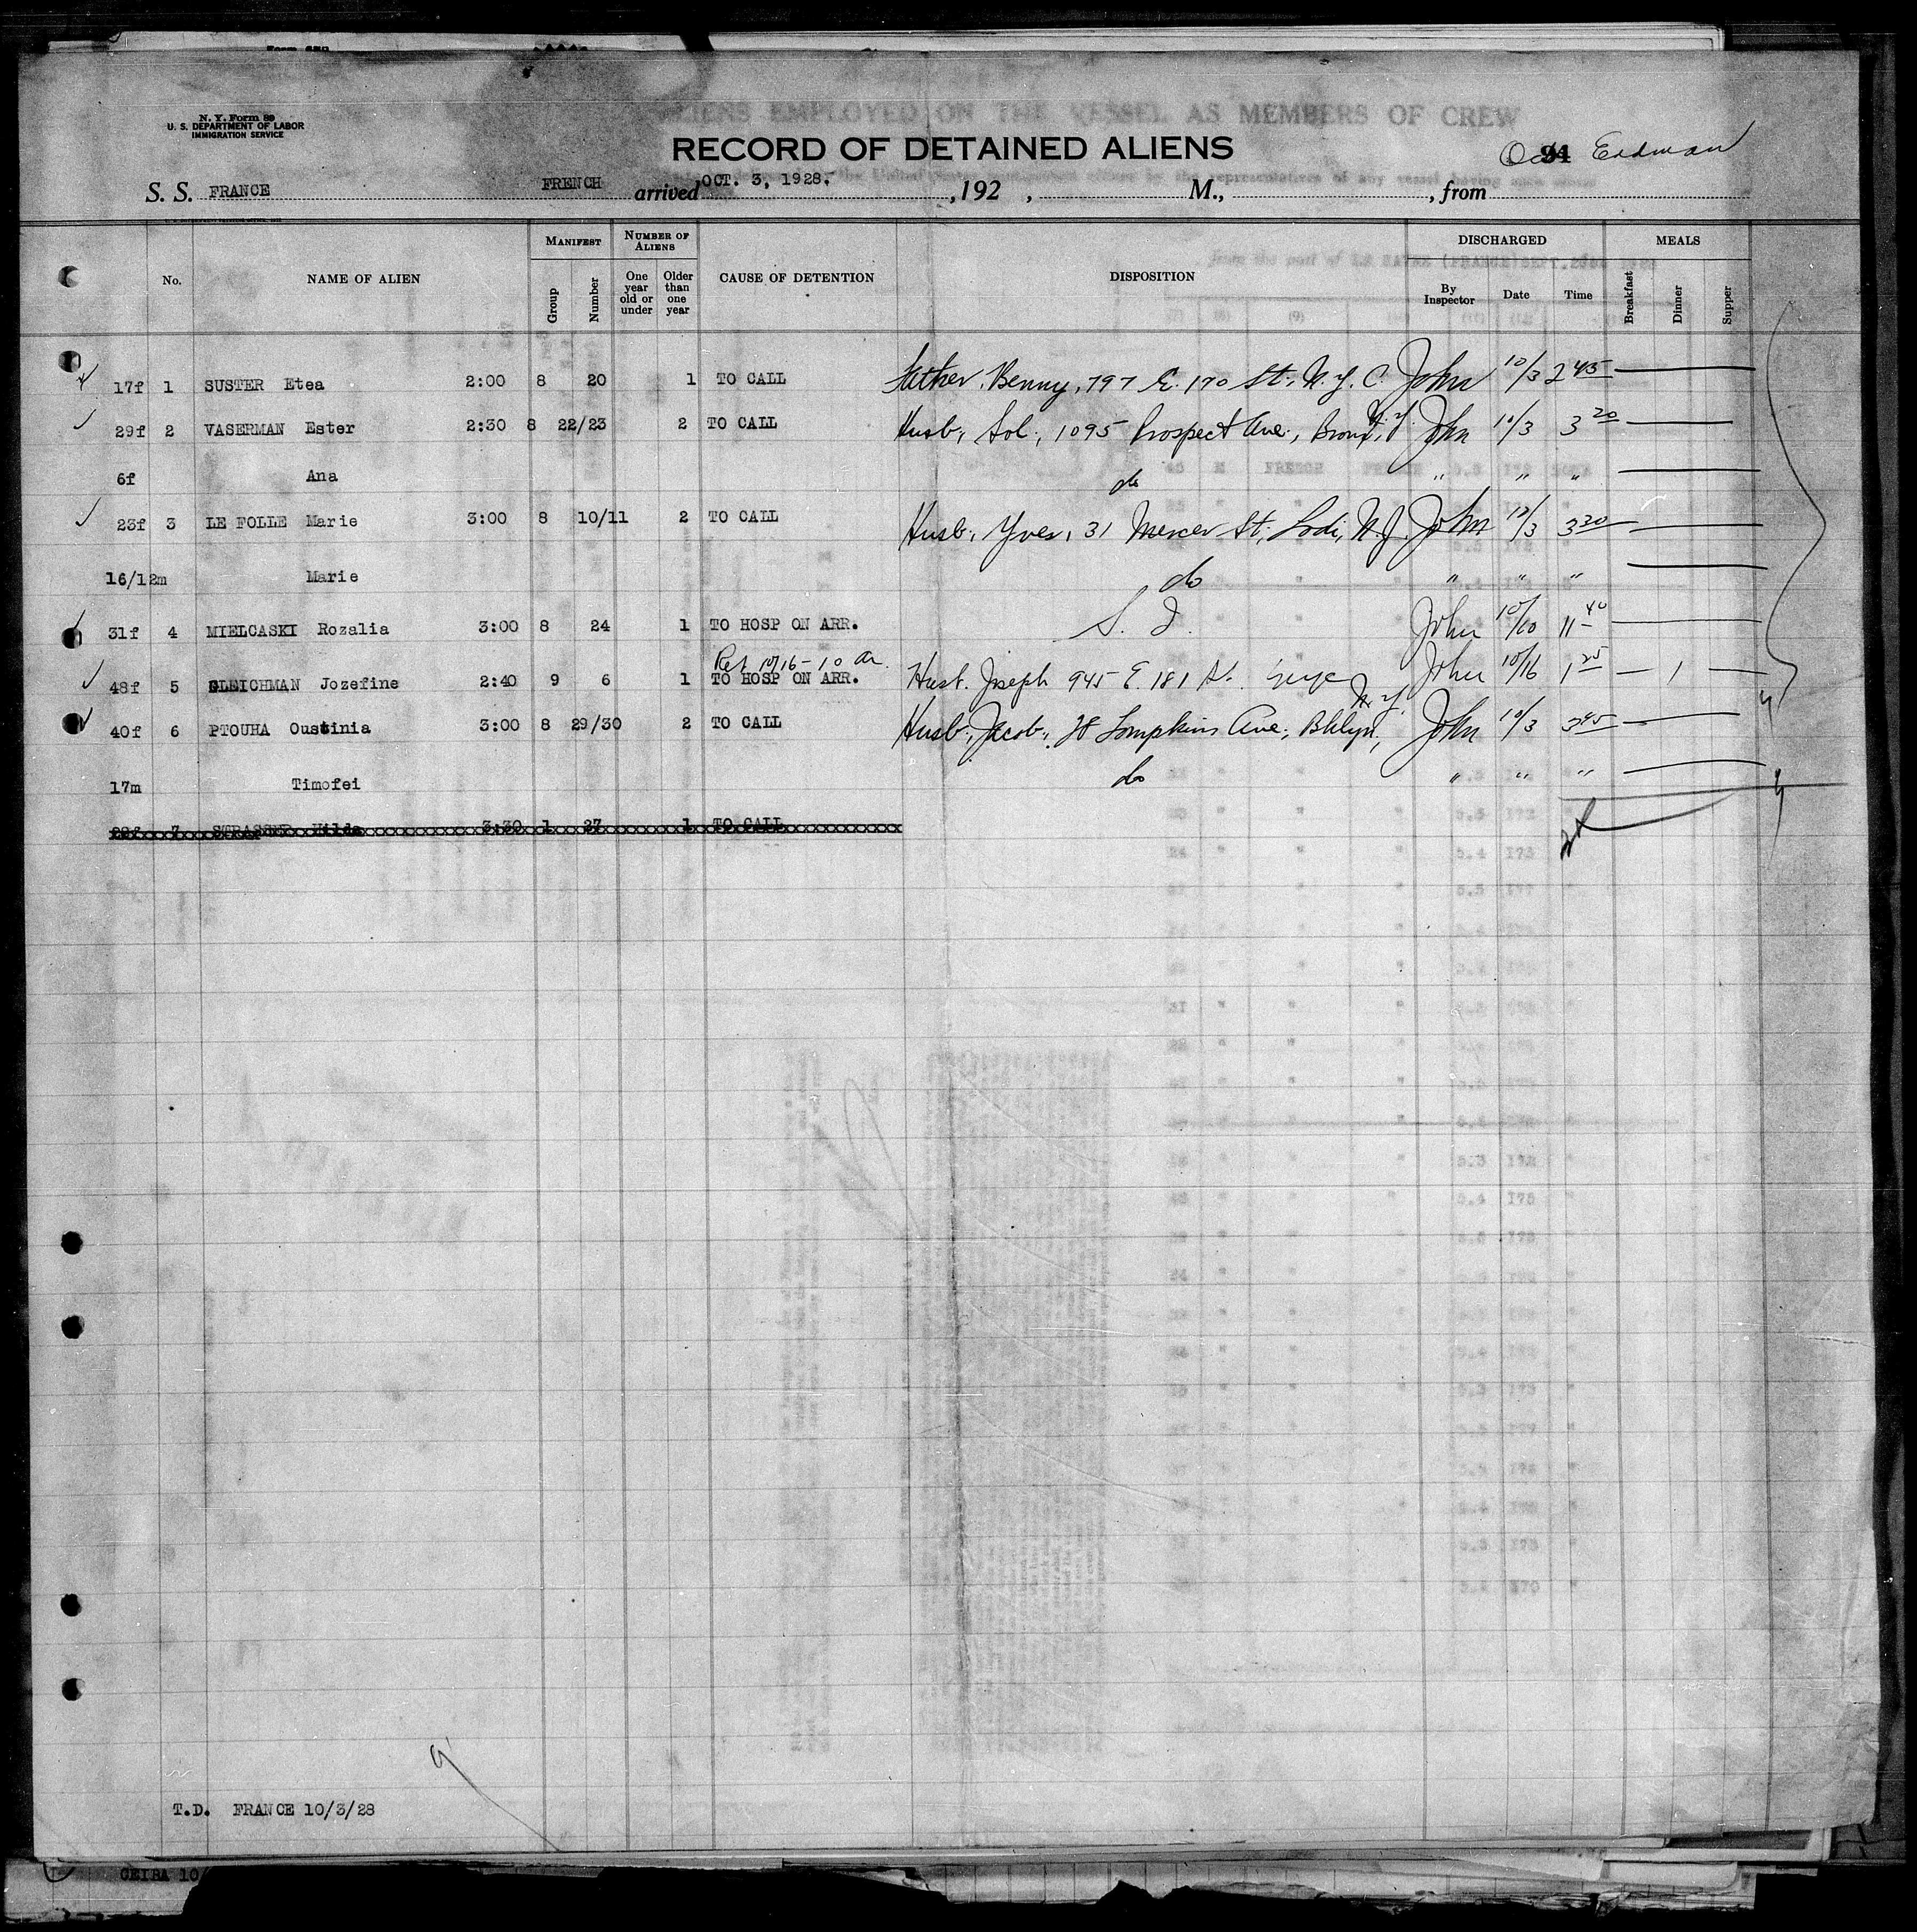 N. Y. Form 89
U. S. DEPARTMENT OF LABOR
IMMIGRATION SERVICE
ALIENS EMPLOYED ON THE VESSEL AS MEMBERS OF CREW
RECORD OF DETAINED ALIENS
91 Erdman
S. S. FRANCE FRENCH arrived OCT. 3, 1928. , 192 , M., , from
No. NAME OF ALIEN MANIFEST Group Number NUMBER OF ALIENS One year old or under Older than one year CAUSE OF DETENTION DISPOSITION DISCHARGED By Inspector Date Time MEALS Breakfast Dinner Supper
17f 1 SUSTER Etea 2:00 8 20 1 TO CALL Father, Benny, 797 E. 170 St., N.Y.C. John 10/3 2 45
29f 2 VASERMAN Ester 2:30 8 22/23 2 TO CALL Husb., Sol., 1095 Prospect Ave., Bronx, N.Y. John 10/3 3 20
6f Ana do " " "
23f 3 LE FOLLE Marie 3:00 8 10/11 2 TO CALL Husb., Yves, 31 Mercer St., Lodi, N.J. John 10/3 3 30
16/12m Marie do " " "
31f 4 MIELCASKI Rozalia 3:00 8 24 1 TO HOSP ON ARR. S. I. John 10/10 11 40
Ret 10/16 - 10 a.
48f 5 GLEICHMAN Jozefine 2:40 9 6 1 TO HOSP ON ARR. Husb. Joseph 945 E. 181 St. nyc John 10/16 1 25 1
40f 6 PTOUHA Oustinia 3:00 8 29/30 2 TO CALL Husb., Jacob, Tompkins Ave., Bklyn, N.Y. John 10/3 3 45
17m Timofei do " " "
28f 7 STRASSER Hilda 3:30 1 27 1 TO CALL
T.D. FRANCE 10/3/28
CEIBA 10/